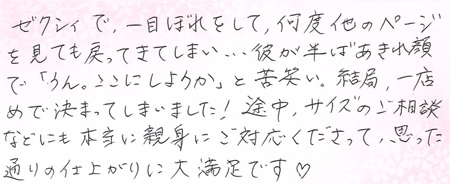 ゼクシィで、一目ぼれをして、何度他のページ
を見ても戻ってきてしまい…彼が半ばあきれ顔
で「うん。ここにしようか」と苦笑い。結局、一店
めで決まってしまいました！途中、サイズのご相談
などにも本当に親身にご対応くださって、思った
通りの仕上がりに大満足です♡